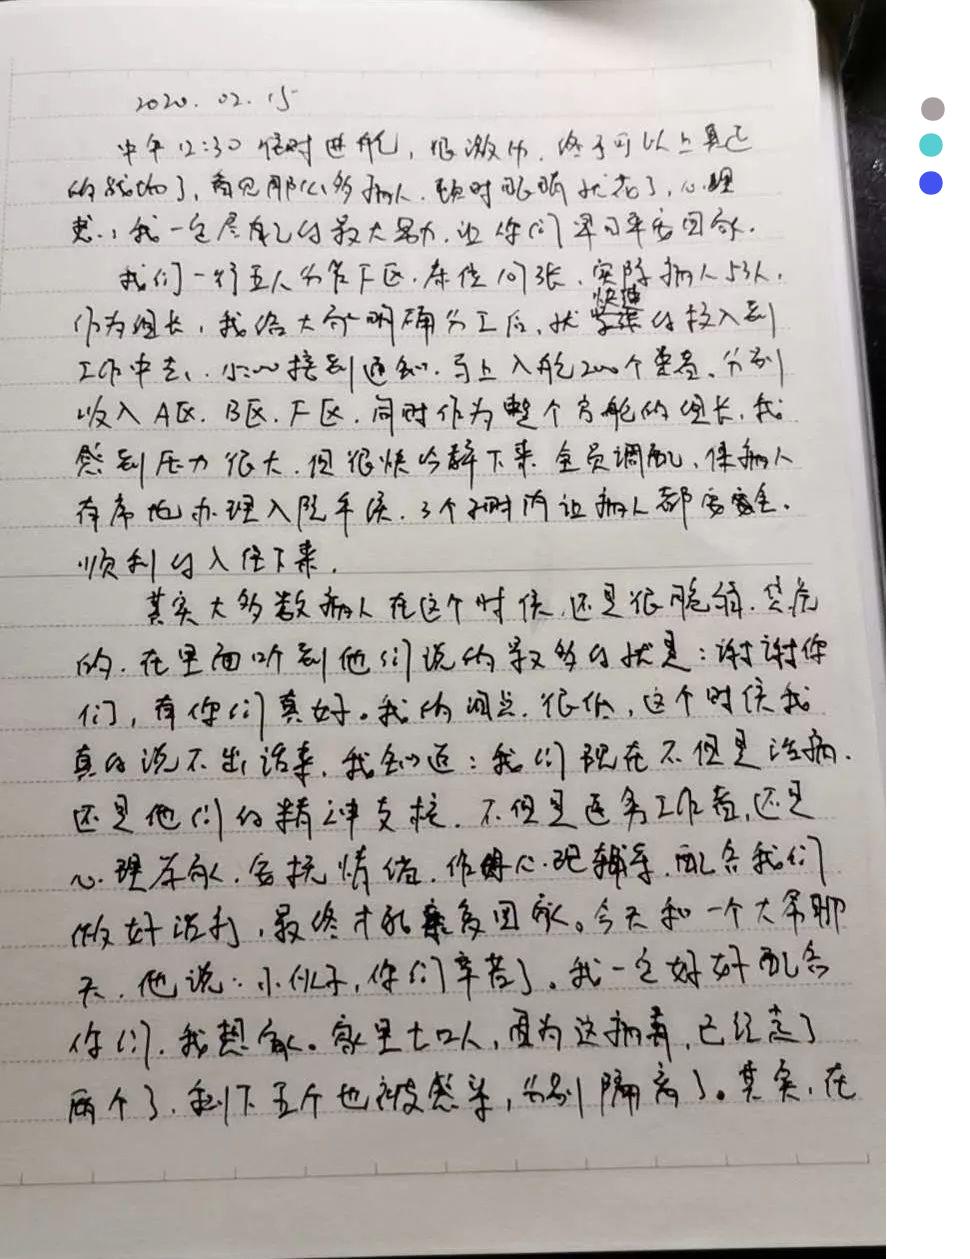 2020.02.15
中午12:30准时进舱，很激动，终于可以上真正
的战场了，看见那么多病人，顿时眼睛就花了，心里
想，我一定尽自己的最大努力，让你们早日平安回家．
我们一行五人分管F区，床位107张，实际病人53人，
作为组长，我给大家明确分工后，就快速的投入到
工作中去，小心接到通知，马上入舱200个患者，分别
收入A区．B区．F区，同时作为整个方舱的组长，我
感到压力很大，但很快冷静下来，全员调配，保病人
有序地办理入院手续．3个小时内让病人都安全．
顺利的入住下来．
其实大多数病人在这个时候，还是很脆弱．焦虑
的．在里面听到他们说的最多的就是：谢谢你
们，有你们真好。我的泪点很低，这个时候我
真的说不出话来，我知道：我们现在不但是治病．
还是他们的精神支柱．不但是医务工作者，还是
心理专家．安抚情绪．作好心理辅导，配合我们
做好治疗，最终才能康复回家。今天和一个大爷聊
天，他说：小伙子，你们辛苦了。我一定好好配合
你们，我想家。家里七口人，因为这病毒，已经走了
两个了，剩下五个也被感染，分别隔离了。其实，在